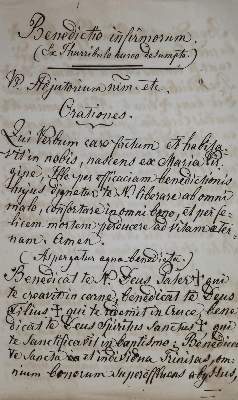 Benedictio infirmorum.
(Ex Thurribulo aureo desumpta.)
V. Adjutorium nrm etc.
Orationes.
Qui Verbum caro factum et habita-
vit in nobis, nascens ex Maria Vir-
gine, Ille per efficaciam benedictionis
hujus dignetur te N. liberare ab omni
malo, confortare in omni bono, et per fe-
licem mortem perducere ad vitam æter-
nam. Amen.
(Aspergatur aqua benedicta.)
Benedicat te N. Deus Pater ✝ qui
te creavit in carne, benedicat te Deus
Filius ✝ qui te redemit in cruce, bene-
dicat te Deus Spiritus Sanctus ✝ qui
te sanctificavit in baptismo; Benedicat
te Sancta et indivisa Trinitas, om-
nium bonorum superaffluens abyssus,